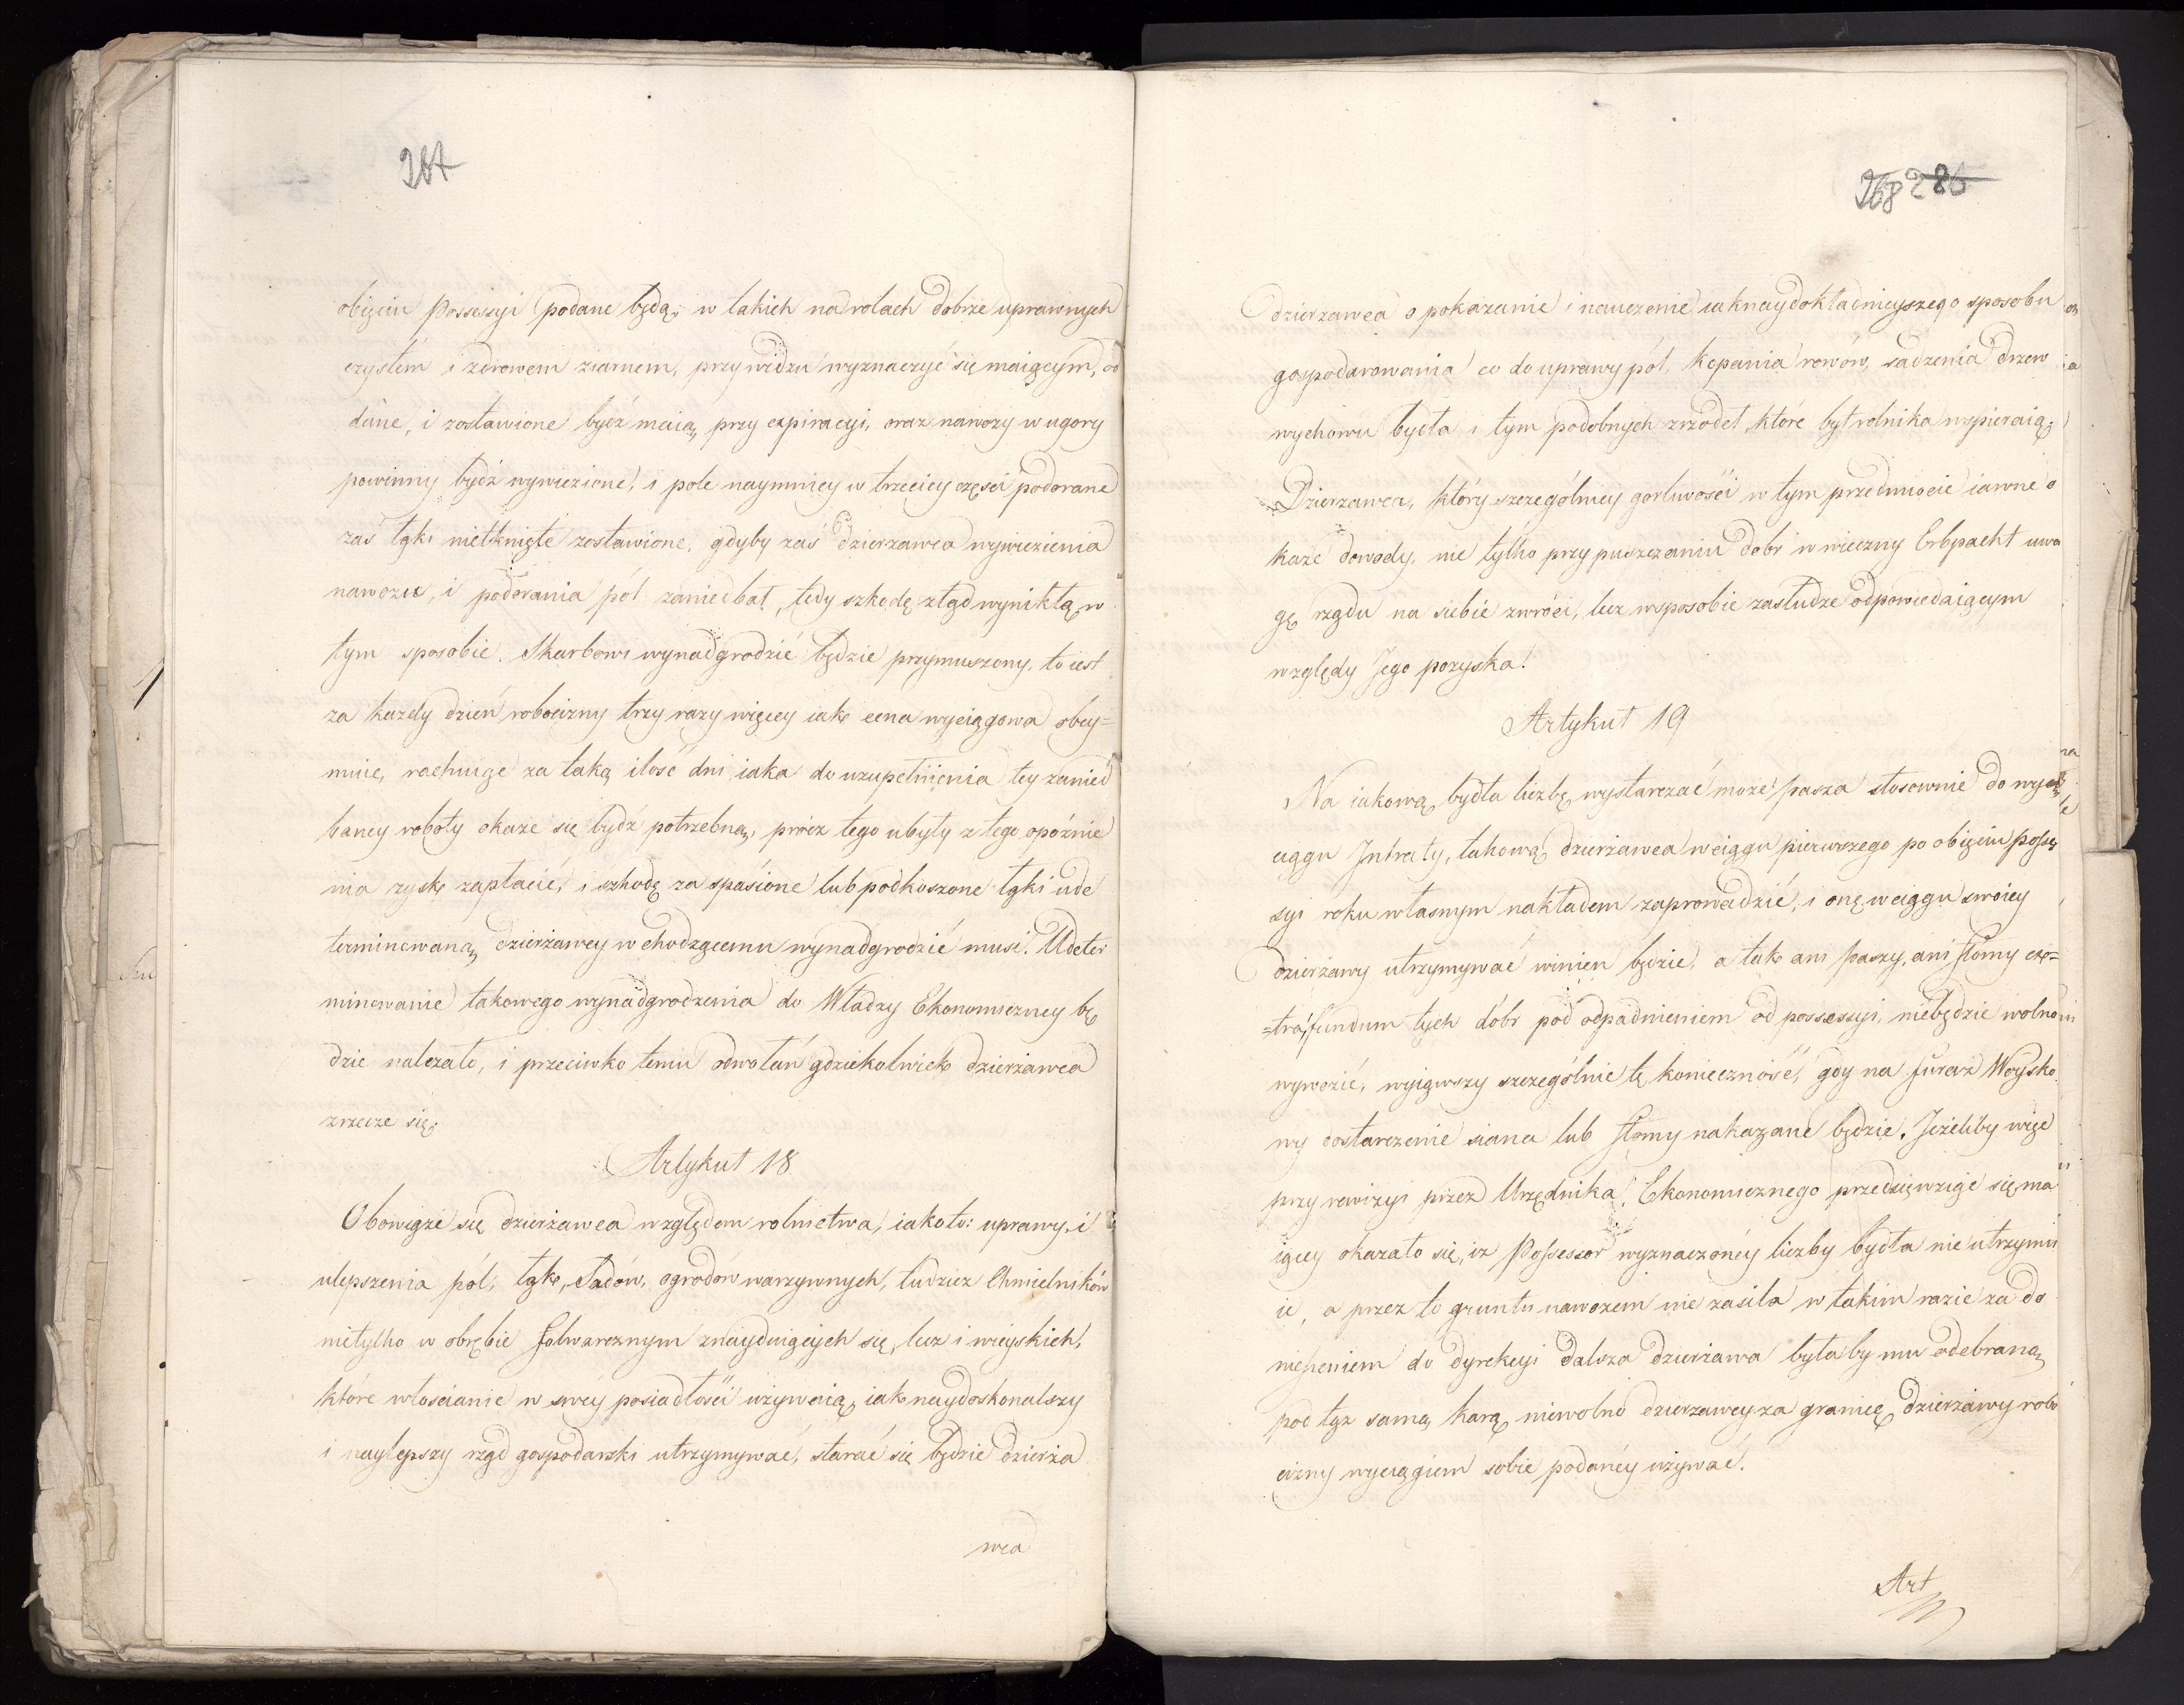 267
obięciu Possessyi podane będą, w takich na rolach dobrze uprawnych
czystém i zdrowem ziarnem, przy widzu wyznaczyć się maiącym, od
dane, i zostawione bydź maią, przy expiracyi, oraz nawozy w ugory
powinny bydź wywiezione, i pole naymniey w trzeciey części podorane
zaś łąki nietknięte zostawione, gdyby zaś dzierzawca wywiezienia
nawozu, i podorania pól zaniedbał, tedy szkodę ztąd wynikłą, w
tym sposobie Skarbowi wynadgrodzić będzie przymuszony, to iest
za kazdy dzień robocizny trzy razy więcey iak cena wyciągowa obey=
muie, rachuiąc za taką ilość dni, iaka do uzupełnienia tey zanied
baney roboty okaże się bydź potrzebną, prócz tego ubyły z tego opóźnie
nia zysk zapłacić, i szkodę za spasione lub podkoszone łąki ude
terminowaną, dzierżawcy wchodzącemu wynadgrodzić musi. Udeter
minowanie takowego wynadgrodzenia do Władzy Ekonomiczney bę
dzie należało, i przeciwko temu odwołań gdziekolwiek dzierżawca
zrzecze się.
Artykuł 18
Obowiąże się dzierżawca względem rolnictwa, iako to: uprawy, i
ulepszenia pól, łąk, Sadów, ogrodów warzywnych, tudzież Chmielników
nietylko w obrębie folwarcznym znayduiących się, lecz i wieyskich,
które włościanie w swéy posiadłości używaią, iak naydoskonalszy
i naylepszy rząd gospodarski utrzymywać, starać się będzie dzierża
wca
268 286
dzierzawca o pokazanie i nauczenie iaknaydokładnieyszego sposobu
gospodarowania co do uprawy pól, kopania rowów, sadzenia drzew
wychowu bydła i tym podobnych zrzodeł, które byt rolnika wspieraią,
Dzierzawca, który szczególniey gorliwości w tym przedmiocie iawne o
każe dowody, nie tylko przy puszczaniu dobr w wieczny Erbpacht uwa
gę rządu na siebie zwróci, lecz w sposobie zasłudze odpowiedaiącym
względy Jego pozyska.
Artykuł 19
Na iakową, bydła liczbę, wystarczać może pasza stosownie do wy
ciągu Intraty, takową dzierżawca w ciągu pierwszego po obięciu posse
syi roku własnym nakładem zaprowadzić, i onę w ciągu swoiey
dzierżawy utrzymywać winien będzie, a tak ani paszy, ani słomy ex=
=tra, fundum tych dóbr pod odpadnieniem od possessyi, niebędzie wolno
wywozić, wyiąwszy szczególnie tę konieczność, gdy na furaż Woysko
wy dostarczenie siana lub słomy nakazane będzie. Jeżeliby więc
przy rewizyi przez Urzędnika Ekonomicznego przedsięwziąć się ma
iącey okazało się, iż Possessor wyznaczonéy liczby bydła nie utrzymu
ie, a przez to gruntu nawozem nie zasila w takim razie za do
niesieniem do dyrekcyi dalsza dzierżawa byłaby mu odebraną,
pod tąż samą, karą, niewolno dzierzawcy za granicę, dzierżawy robo
cizny wyciągiem sobie podanéy używać.
Art